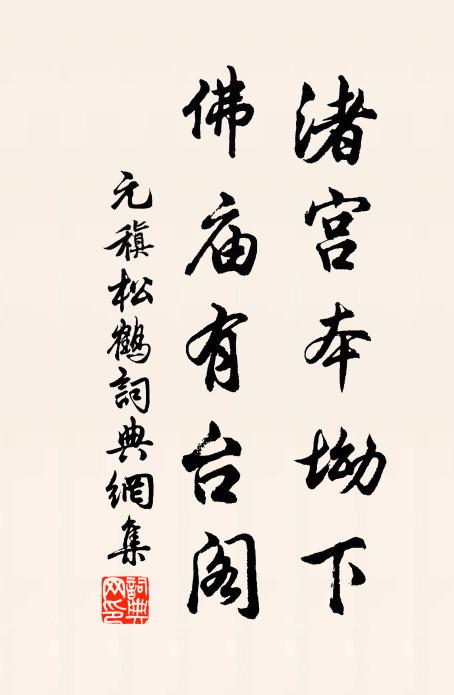 渚宫本坳下
佛庙有台阁
元稹松鶴詞典網集
詞典网印